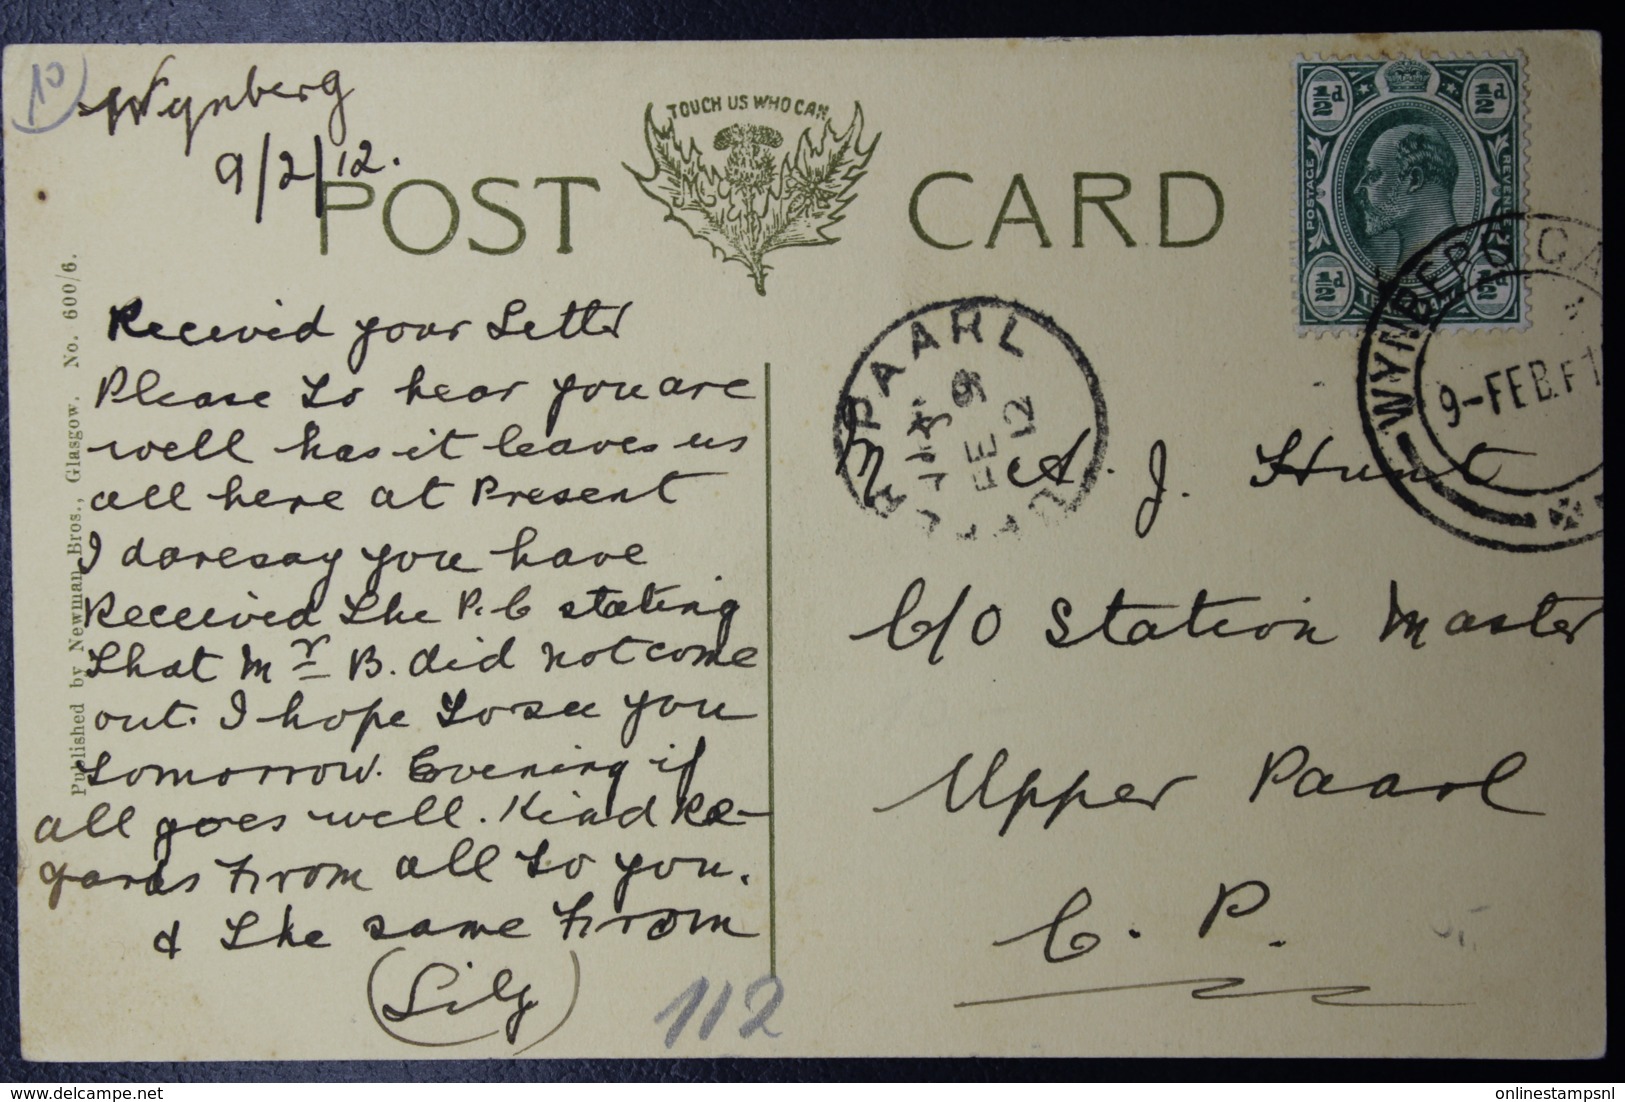 10
Wynberg
9/2/12.
TOUCH US WHO CAN
POST CARD
½d ½d
POSTAGE REVENUE
½d ½d
WYNBERG
9-FEB.
PAARL
FE 9
12
Published by Newman Bros., Glasgow. No. 600/6.
Receivid your Letter
Please to hear you are
well has it leaves us
all here at Present
I daresay you have
Received the P.C stating
that Mr B. did not come
out. I hope to see you
tomorrow. Evening if
all goes well. Kind Re-
gards From all to you.
& the same From
(Lily)
112
M A. J. Hunt
C/O Station Master
Upper Paarl
C. P.
onlinestampsnl